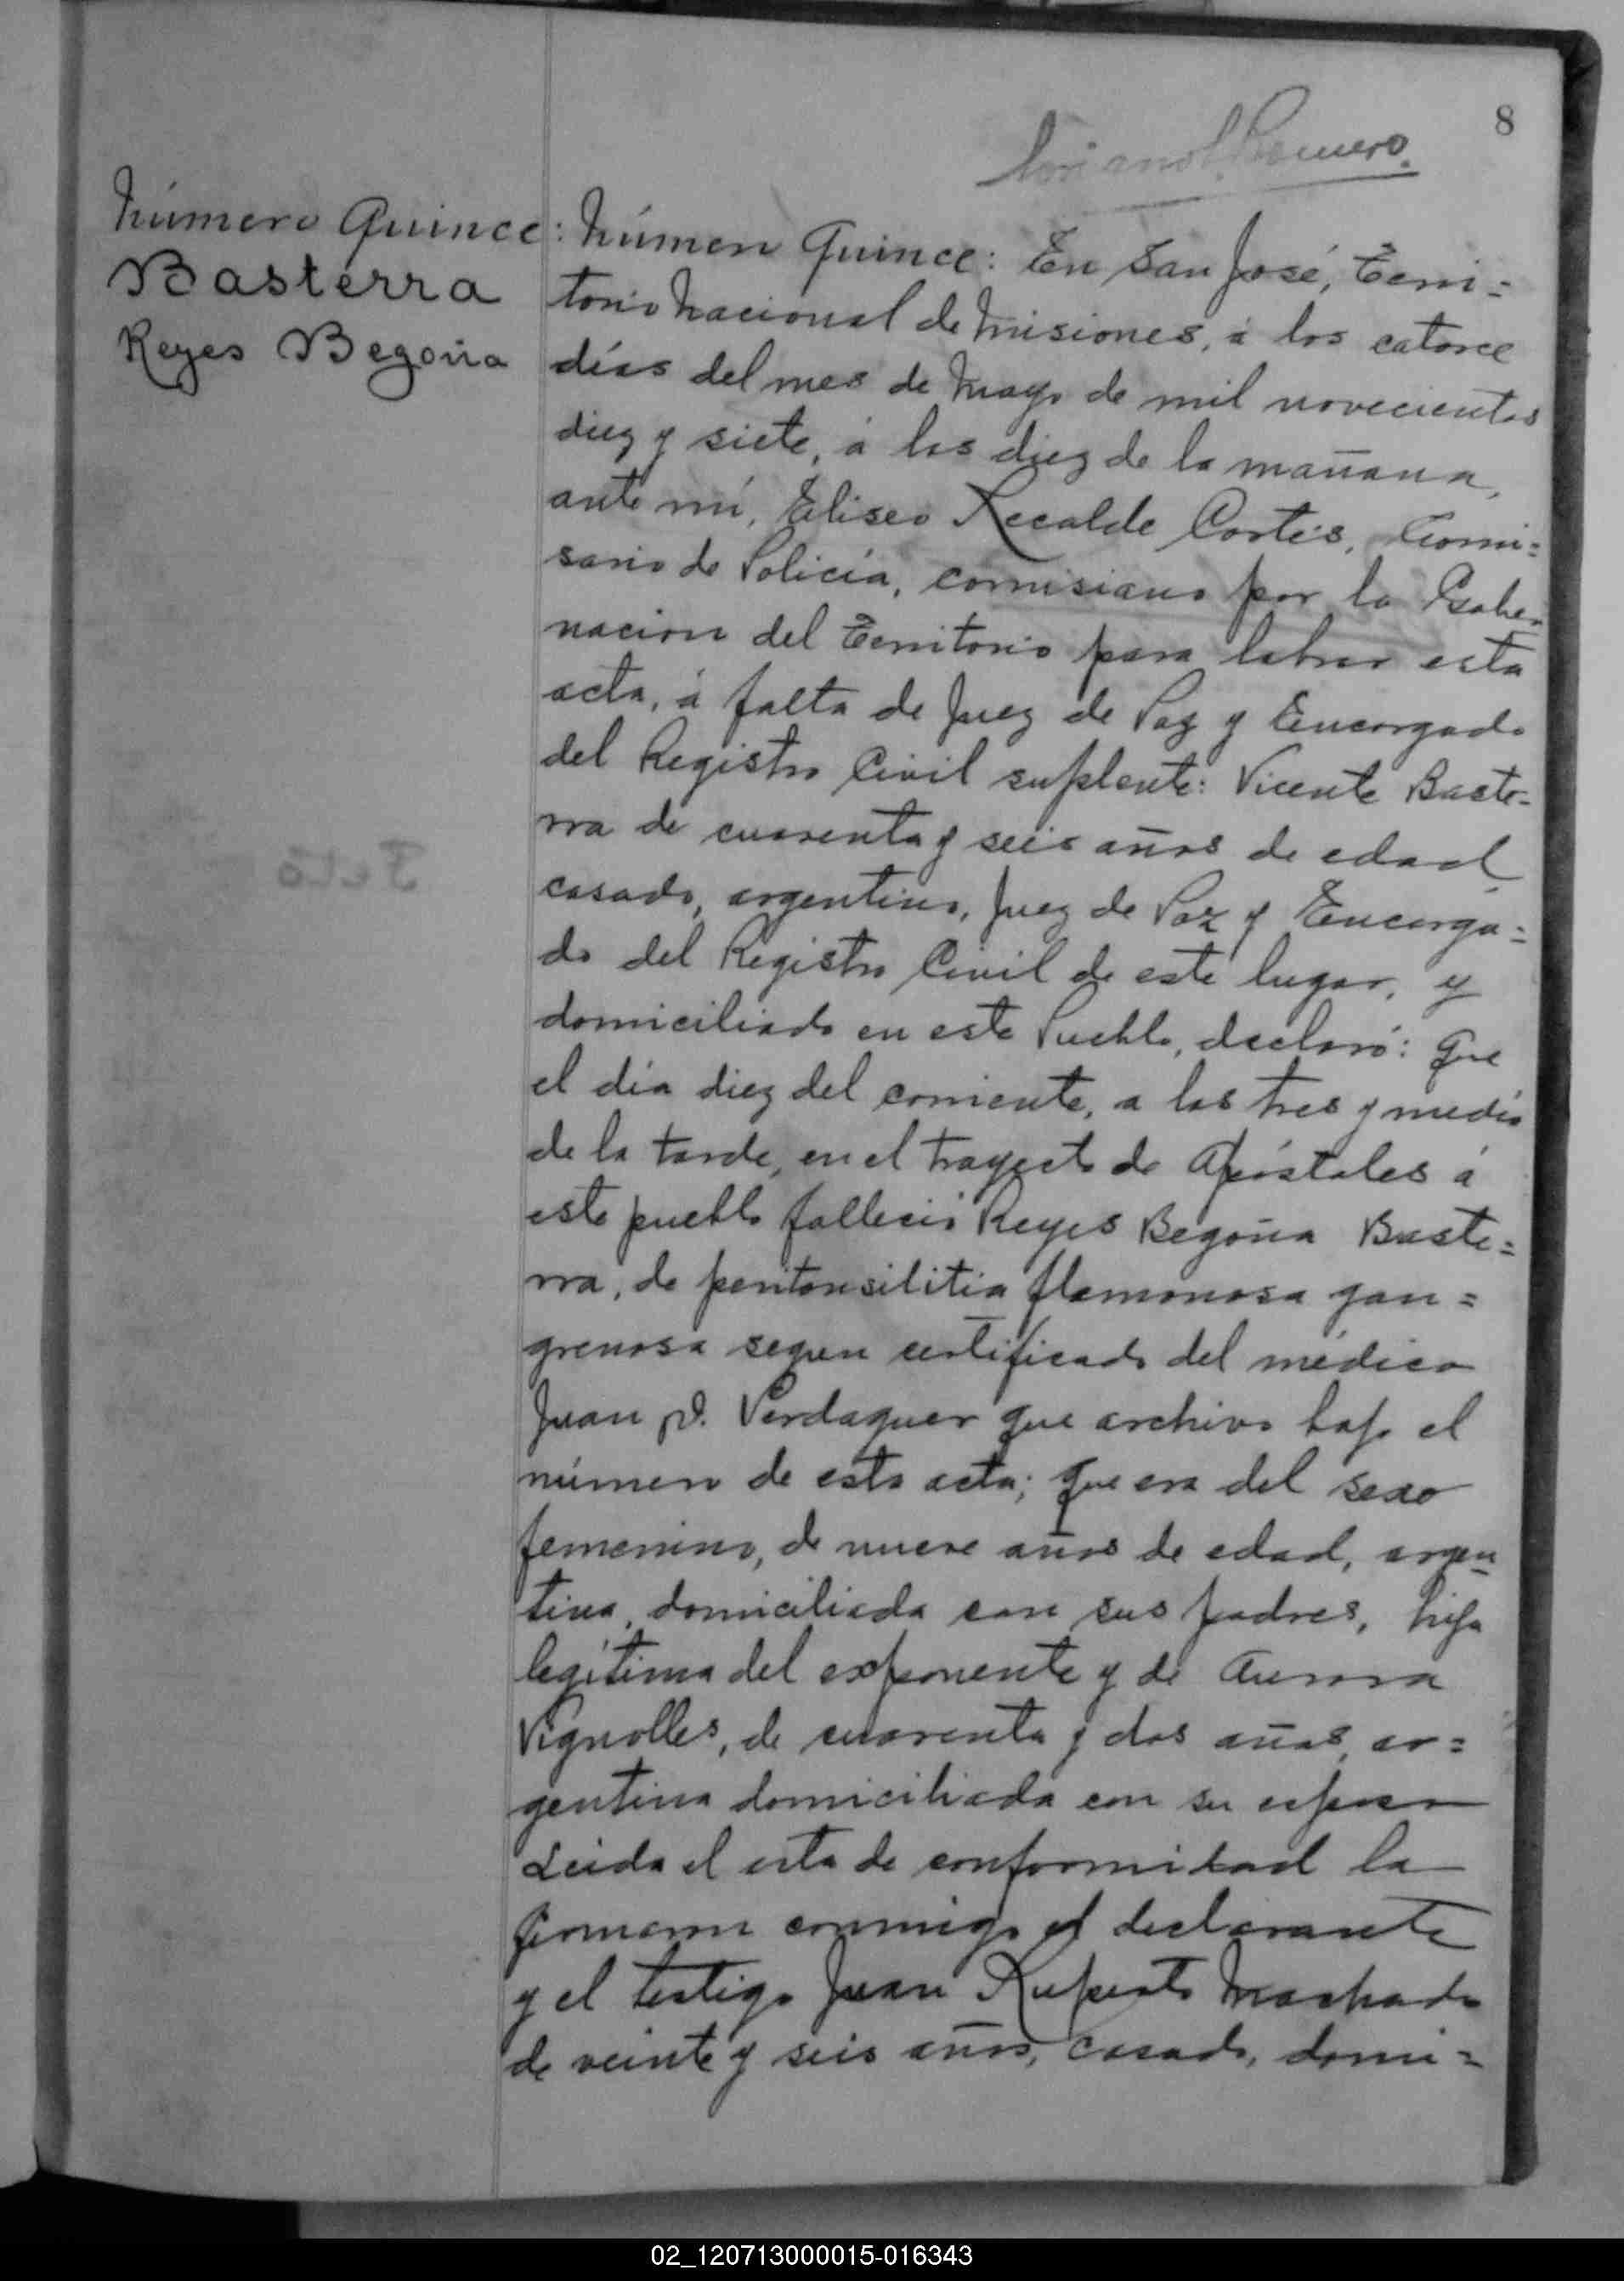 8
Romero.
Número Quince:
Basterra
Reyes Begoña
Número Quince: En San José, Terri=
torio Nacional de Misiones, á los catorce
días del mes de Mayo de mil novecientos
diez y siete, á las diez de la mañana,
ante mí, Eliseo Recalde Cortés, Comi=
sario de Policía, comisiano por la Gober-
nacion del Territorio para labrar esta
acta, á falta de Juez de Paz y Encargado
del Registro Civil suplente: Vicente Baste-
rra de cuarenta y seis años de edad,
casado, argentino, Juez de Paz y Encarga=
do del Registro Civil de este lugar, y
domiciliado en este Pueblo, declaró: Que
el día diez del corriente, a las tres y media
de la tarde, en el trayecto de Apóstoles á
este pueblo falleció Reyes Begoña Baste=
rra, de peritonsilitia flemonosa gan=
grenosa segun certificado del médico
Juan D. Verdaguer que archivo bajo el
número de esta acta; que era del sexo
femenino, de nueve años de edad, argen-
tina, domiciliada con sus padres, hija
legítima del exponente y de Aurora
Vignolles, de cuarenta y dos años, ar=
gentina domiciliada con su esposo
Leida el acta de conformidad la
firmaron conmigo el declarante
y el testigo Juan Ruperto Machado
de veinte y seis años, casado, domi=
02_120713000015-016343